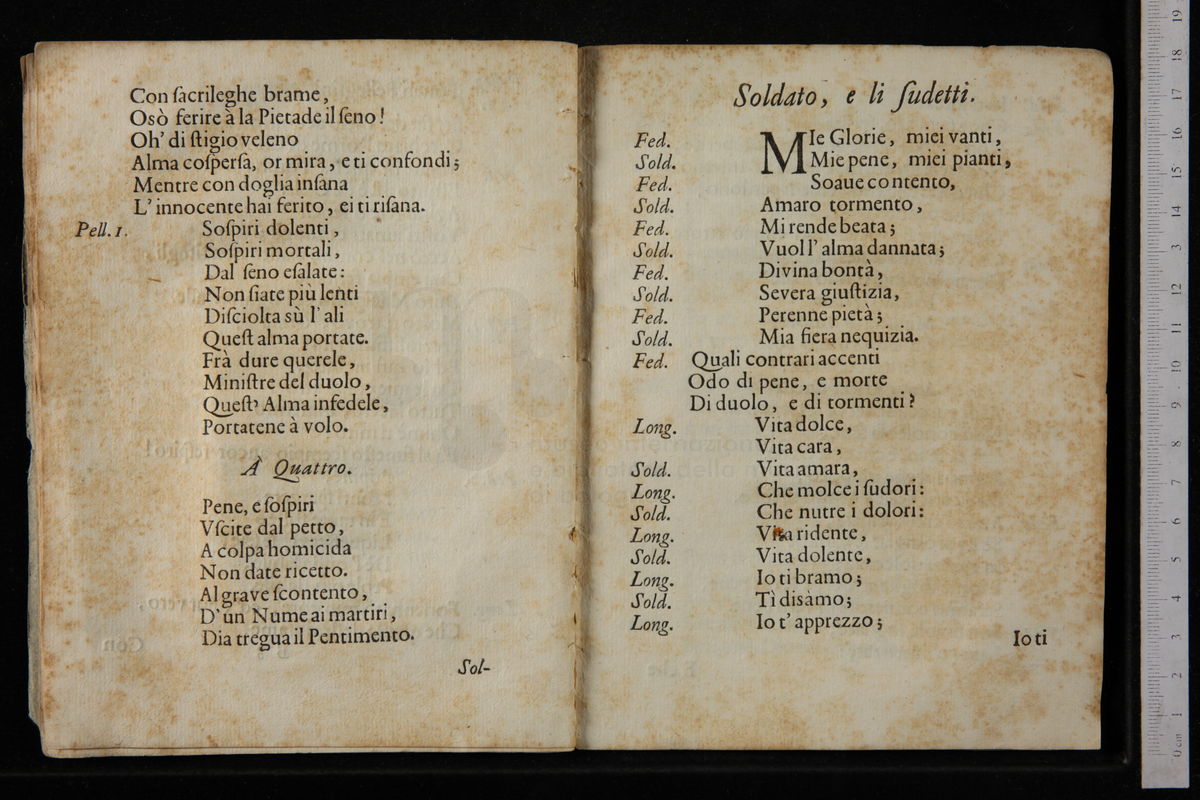 Con ſacrileghe brame,
Osò ferire à la Pietade il ſeno!
Oh' di ſtigio veleno
Alma coſperſa, or mira, e ti confondi;
Mentre con doglia inſana
L' innocente hai ferito, ei ti riſana.
Pell. 1. Soſpiri dolenti,
Soſpiri mortali,
Dal ſeno eſalate:
Non ſiate più lenti
Diſciolta sù l' ali
Queſt alma portate.
Frà dure querele,
Miniſtre del duolo,
Queſt' Alma infedele,
Portatene à volo.
À Quattro.
Pene, e ſoſpiri
Vſcite dal petto,
A colpa homicida
Non date ricetto.
Al grave ſcontento,
D' un Nume ai martiri,
Dia tregua il Pentimento.
Sol-
Soldato, e li ſudetti.
Fed. MIe Glorie, miei vanti,
Sold. Mie pene, miei pianti,
Fed. Soaue contento,
Sold. Amaro tormento,
Fed. Mi rende beata;
Sold. Vuol l' alma dannata;
Fed. Divina bontà,
Sold. Severa giuſtizia,
Fed. Perenne pietà;
Sold. Mia fiera nequizia.
Fed. Quali contrari accenti
Odo di pene, e morte
Di duolo, e di tormenti?
Long. Vita dolce,
Vita cara,
Sold. Vita amara,
Long. Che molce i ſudori:
Sold. Che nutre i dolori:
Long. Vita ridente,
Sold. Vita dolente,
Long. Io ti bramo;
Sold. Tì disàmo;
Long. Io t' apprezzo;
Io ti